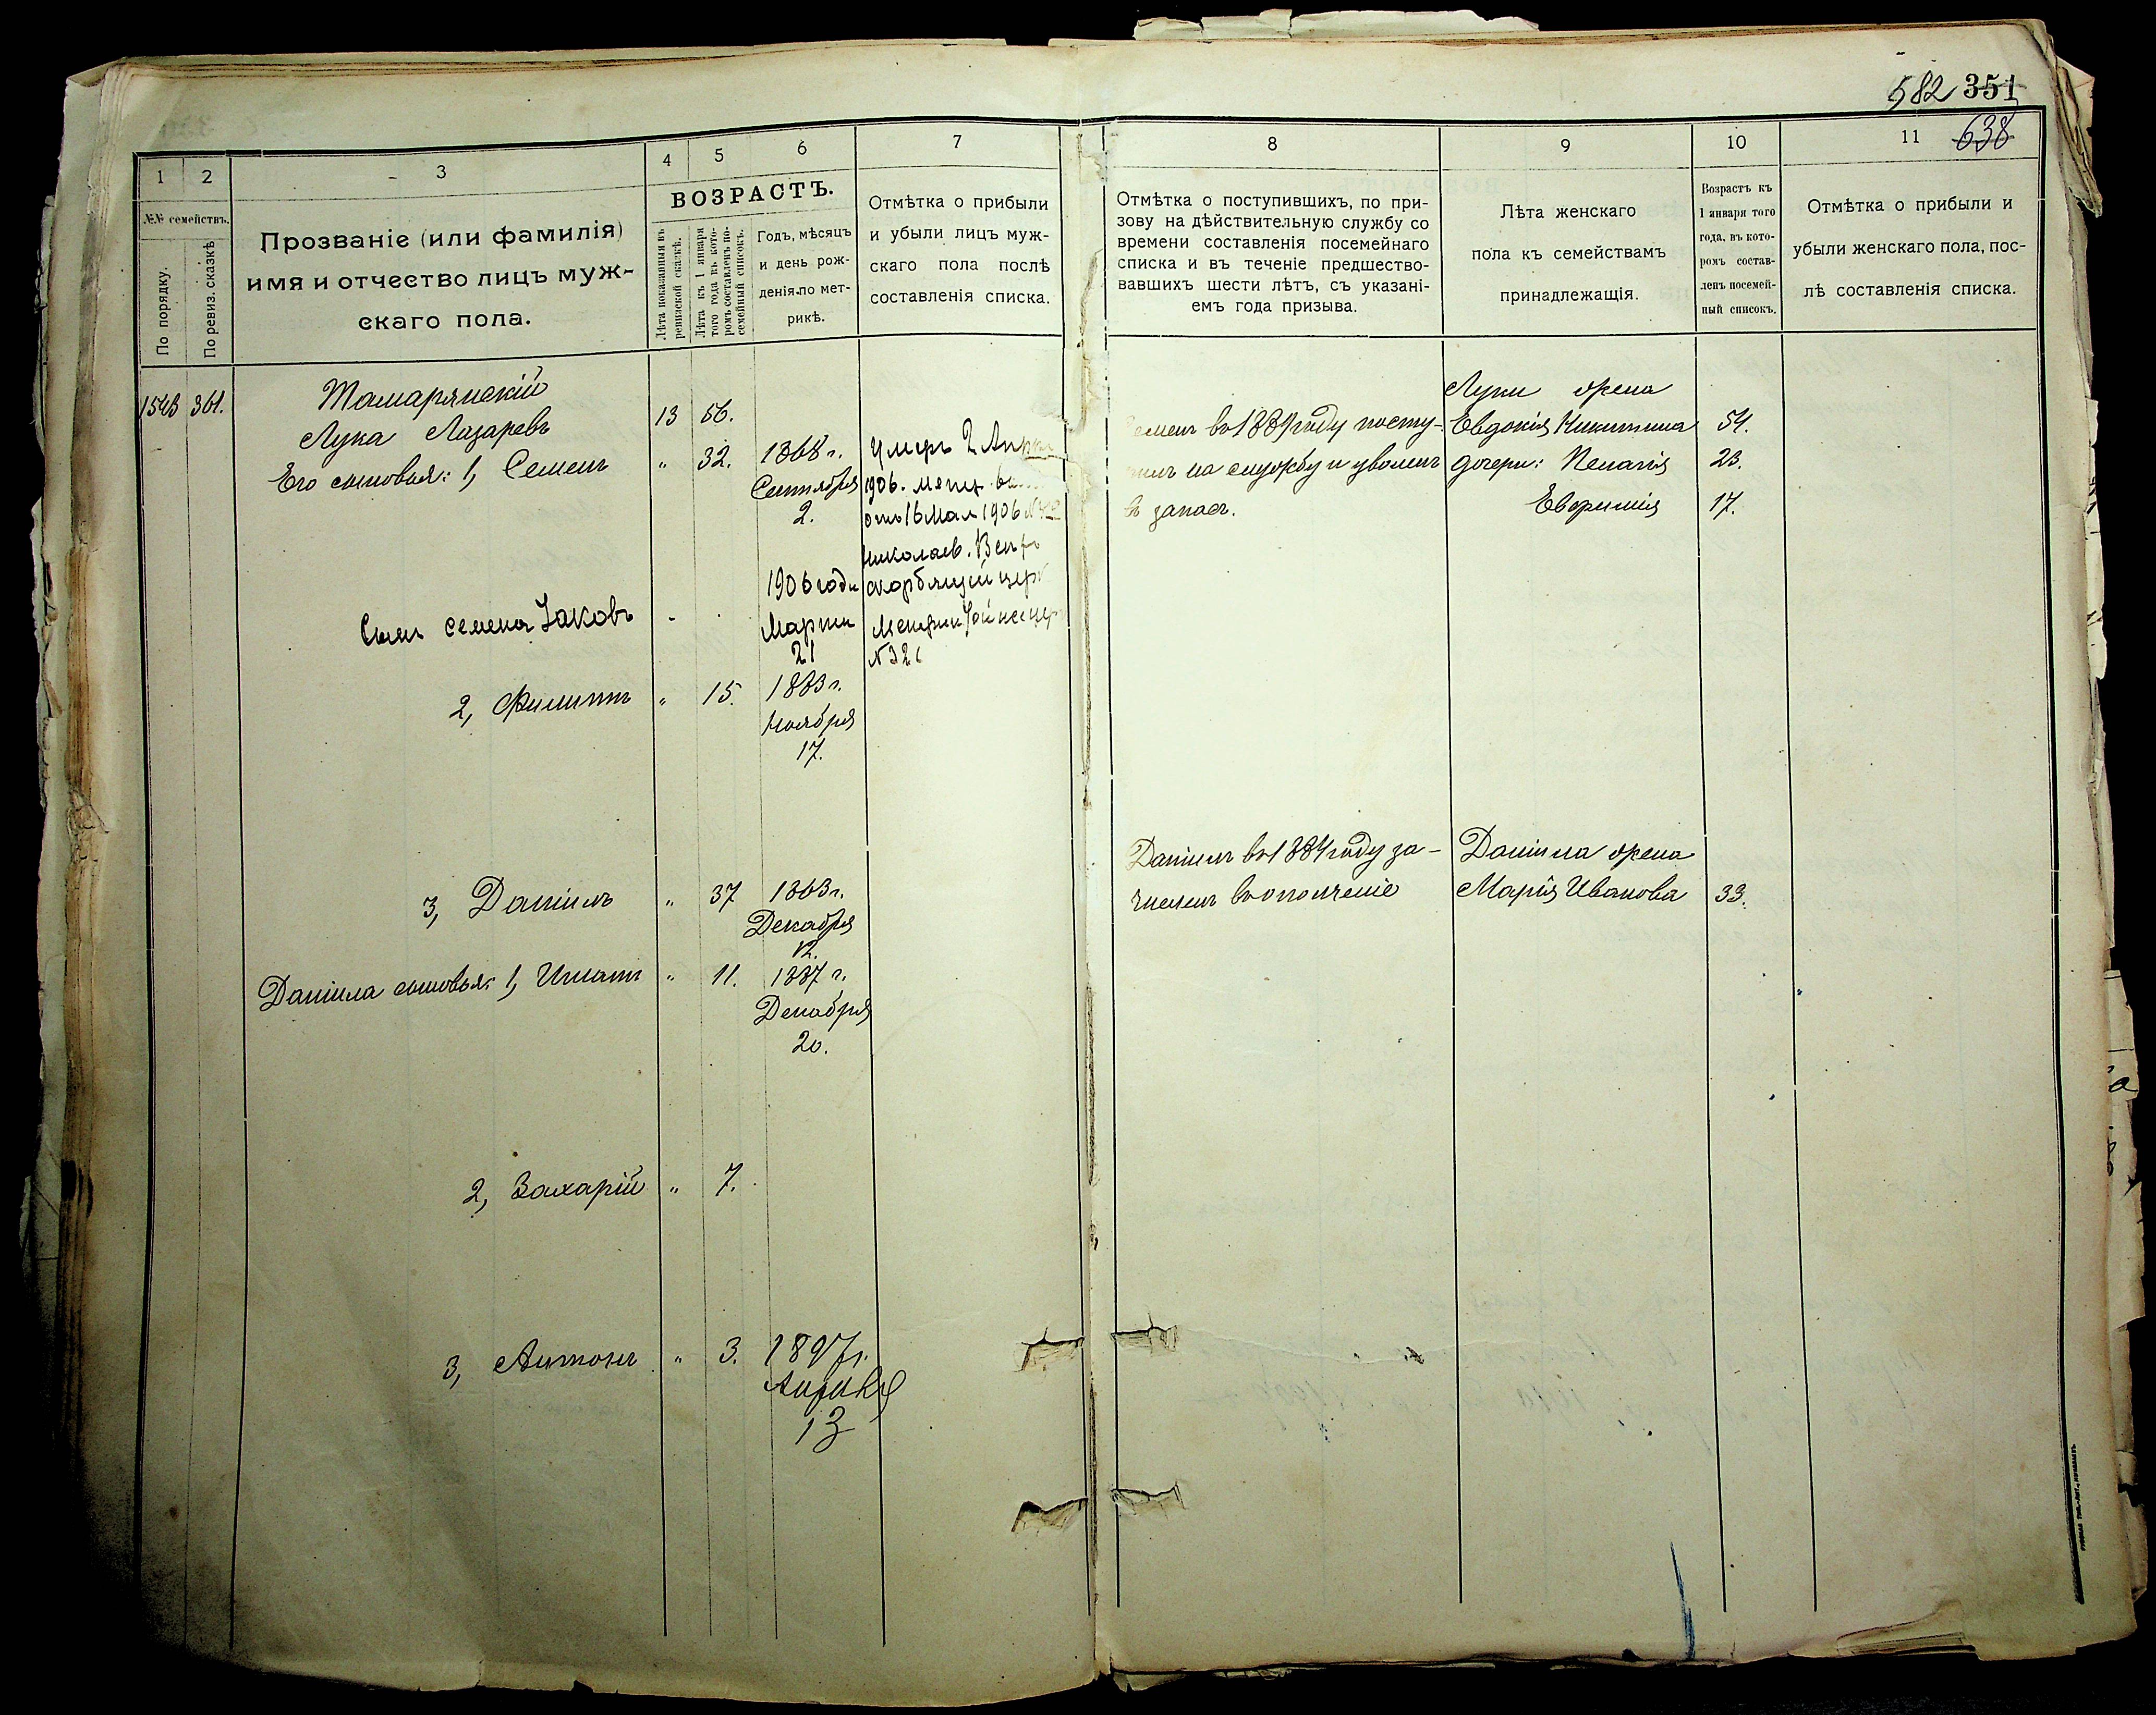 582 351
638
1 2 3 4 5 6 7
№№ семействъ.
По порядку.
По ревиз. сказкѣ
Прозваніе (или фамилія)
имя и отчество лицъ муж-
скаго пола.
ВОЗРАСТЪ.
Лѣта показанныя въ
ревизской сказкѣ.
Лѣта къ 1 января
того года къ кото-
ромъ составленъ по-
семейный списокъ.
Годъ, мѣсяцъ
и день рож-
денія по мет-
рикѣ.
Отмѣтка о прибыли
и убыли лицъ муж-
скаго пола послѣ
составленія списка.
8 9 10 11
Отмѣтка о поступившихъ, по при-
зову на дѣйствительную службу со
времени составленія посемейнаго
списка и въ теченіе предшество-
вавшихъ шести лѣтъ, съ указані-
емъ года призыва.
Лѣта женскаго
пола къ семействамъ
принадлежащія.
Возрастъ къ
1 января того
года, въ кото-
ромъ состав-
ленъ посемей-
ный списокъ.
Отмѣтка о прибыли и
убыли женскаго пола, пос-
лѣ составленія списка.
1543 361.
Лука Лазаревъ 13 56.
Его сыновья: 1, Семенъ " 32. 1868 г.
Сентября
2.
Умеръ 2
1906.
отъ 16 Мая 1906
Николаев.
Скорбящей
Сынъ Семена Іаковъ
1906 года
Марта
21
№ 326
2, Филиппъ " 15. 1883 г.
Ноября
17.
3, Даніилъ " 37 1863 г.
Декабря
12.
Даніила сыновья: 1, Игнатъ " 11. 1887 г.
Декабря
20.
2, Захарій " 7.
3, Антонъ " 3. 1897 г.
Апрѣля
13
въ 1889 году посту-
на службу и уволенъ
въ запас.
Луки жена
Евдокія Никитина 54.
дочери: Пелагія 23.
Евфимія 17.
Даніилъ въ 1884 году за-
численъ въ ополченіе
Даніила жена
Марія Иванова 33.